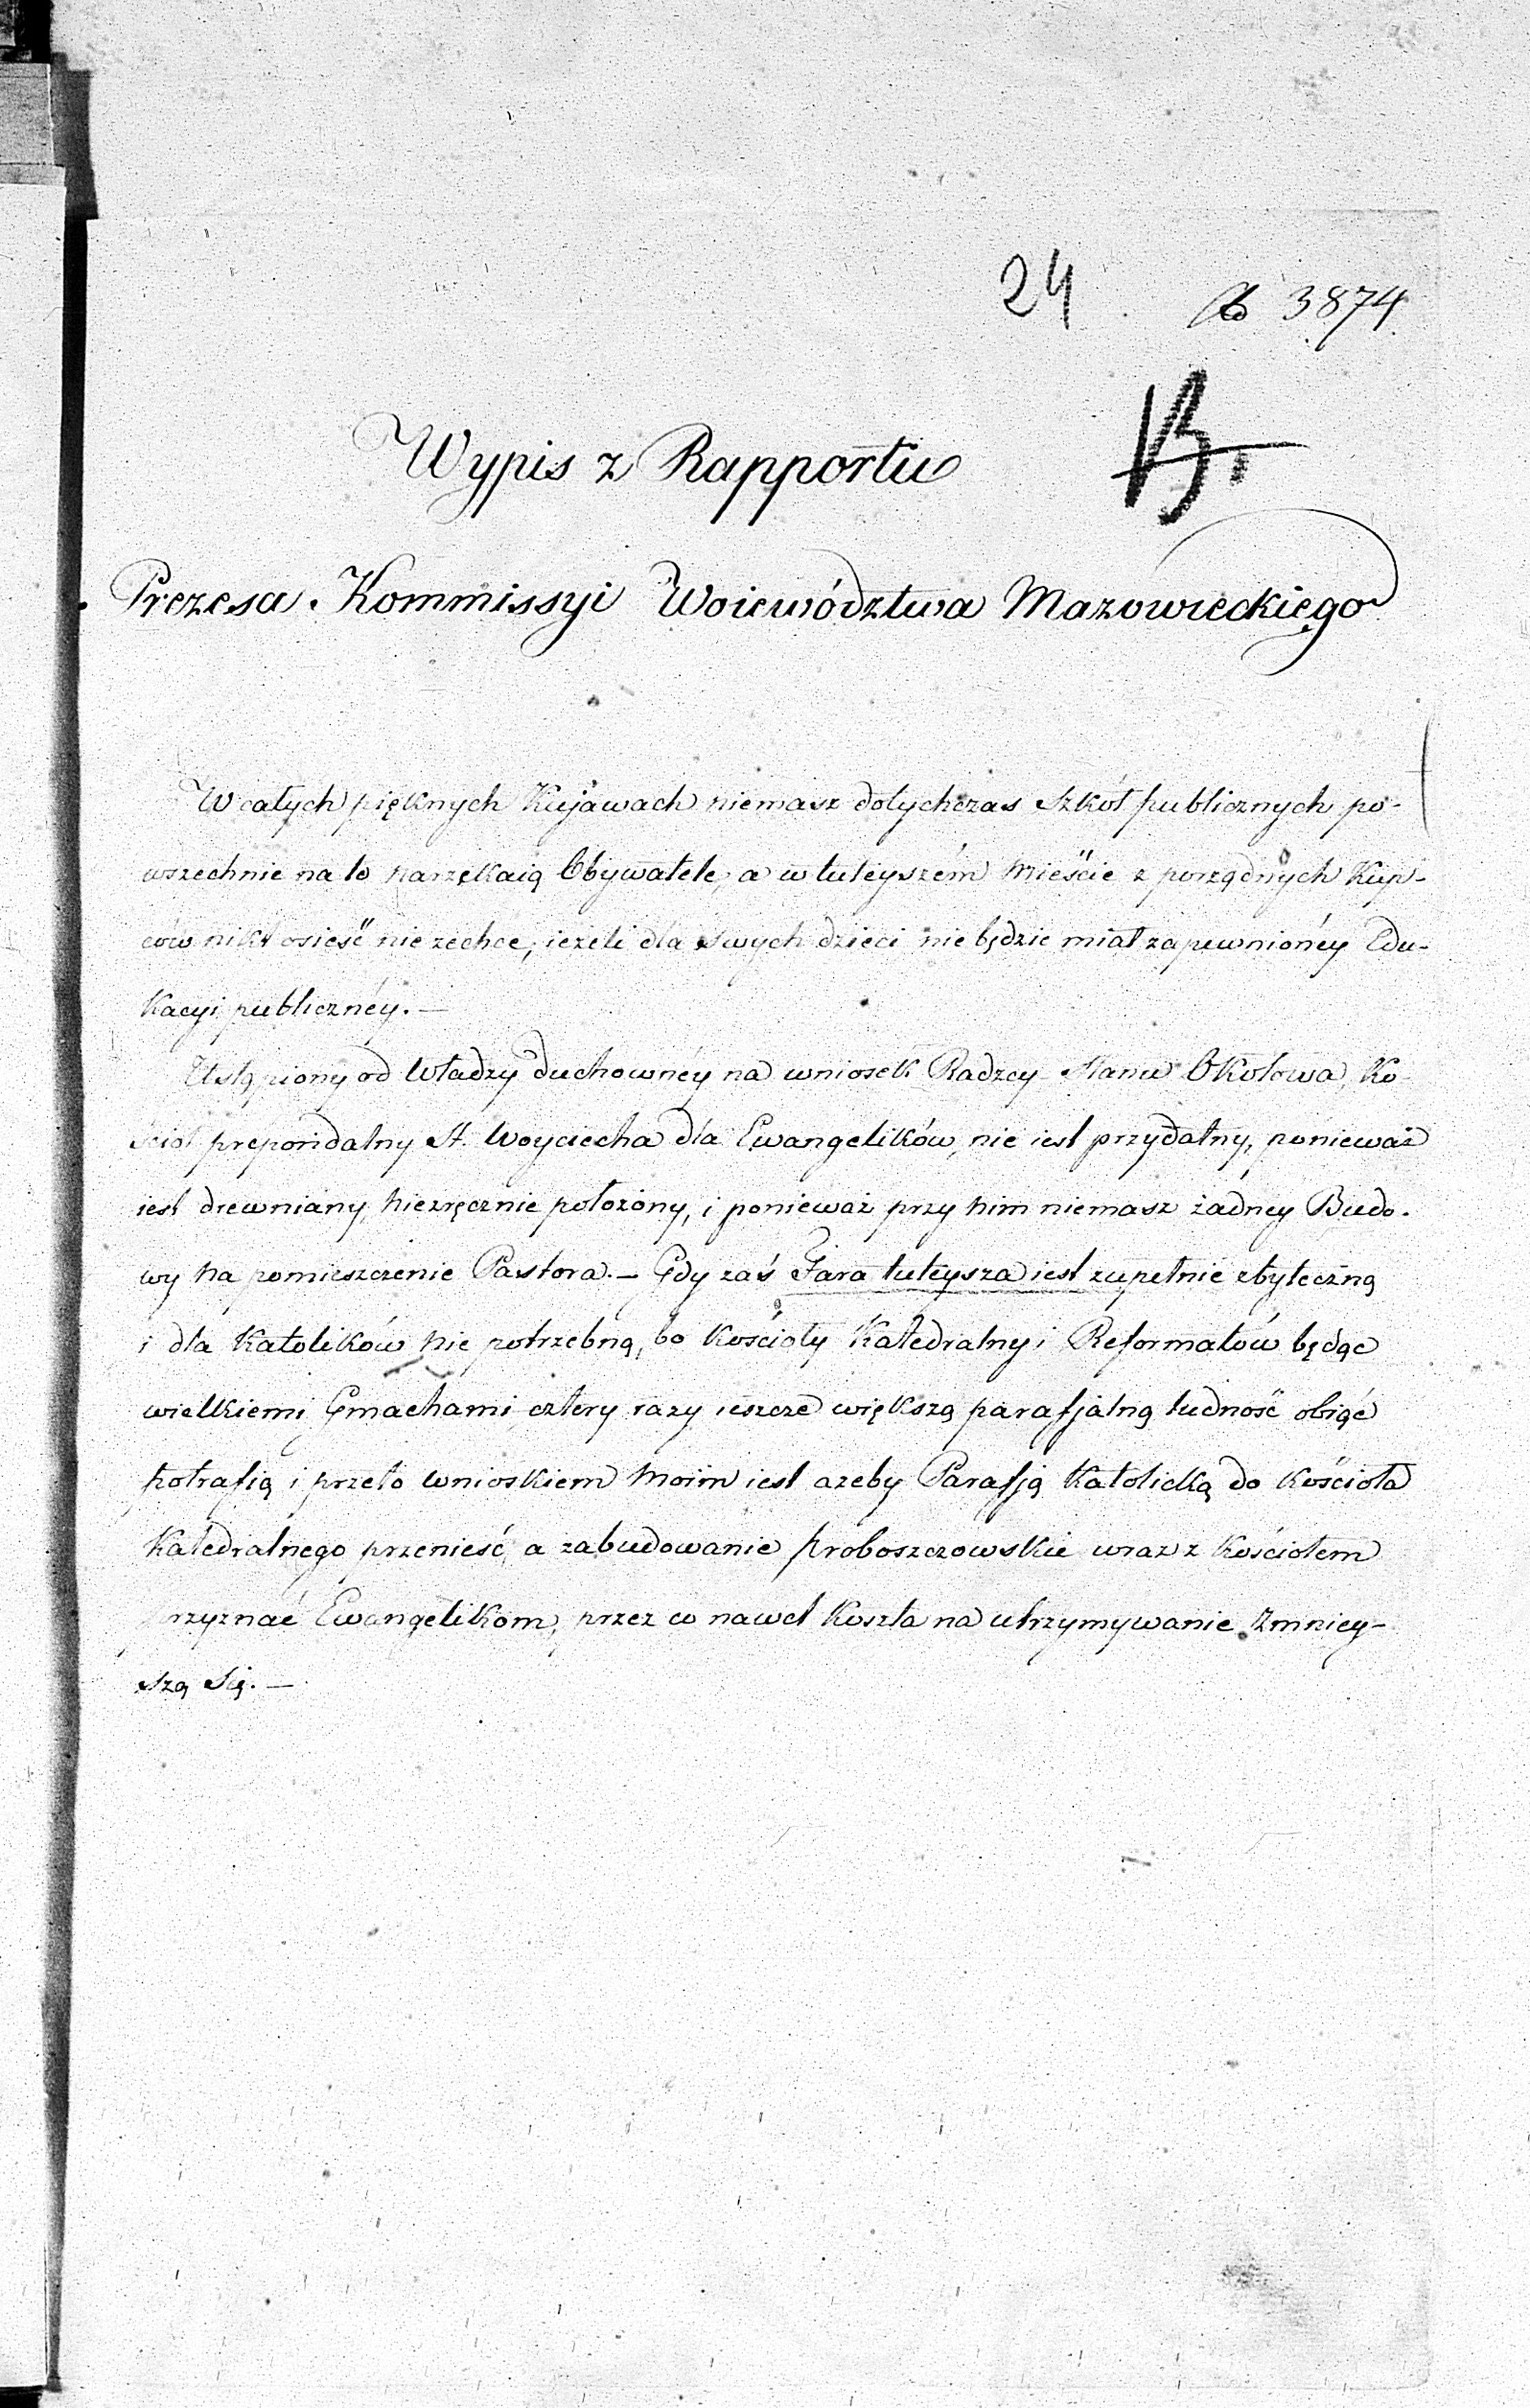 24
3874
B.
Wypis z Rapportu
Prezesa Kommissyi Woiewództwa Mazowieckiego
W całych pięknych Kujawach niemasz dotychczas Szkół publicznych po-
wszechnie na to narzękaią Obywatele, a w tuteyszém Mieście z porządnych Kup-
ców nikt osieść nie zechce, ieżeli dla swych dzieci nie będzie miał zapewnionéy Edu-
kacyi publicznéy. —
Ustąpiony od Władzy duchownéy na wniosek Radzcy Stanu Okołowa, Ko-
ściół prepozidalny St. Woyciecha dla Ewangelików, nie iest przydatny, ponieważ
iest drewniany, niezręcznie położony, i ponieważ przy nim niemasz żadney Budo-
wy na pomieszczenie Pastora. — Gdy zaś Fara tuteysza iest zupełnie zbyteczną
i dla Katolików nie potrzebną, bo Kościoły Katedralny i Reformatów będąc
wielkiemi Gmachami cztery razy ieszcze większą parafjalną ludność obiąć
potrafią i przeto wnioskiem Moim iest ażeby Parafją Katolicką do Kościoła
Katedralnego przenieść, a zabudowanie proboszczowskie wraz z Kościołem
przyznać Ewangelikom, przez co nawet Koszta na utrzymywanie zmniey-
szą Się. —